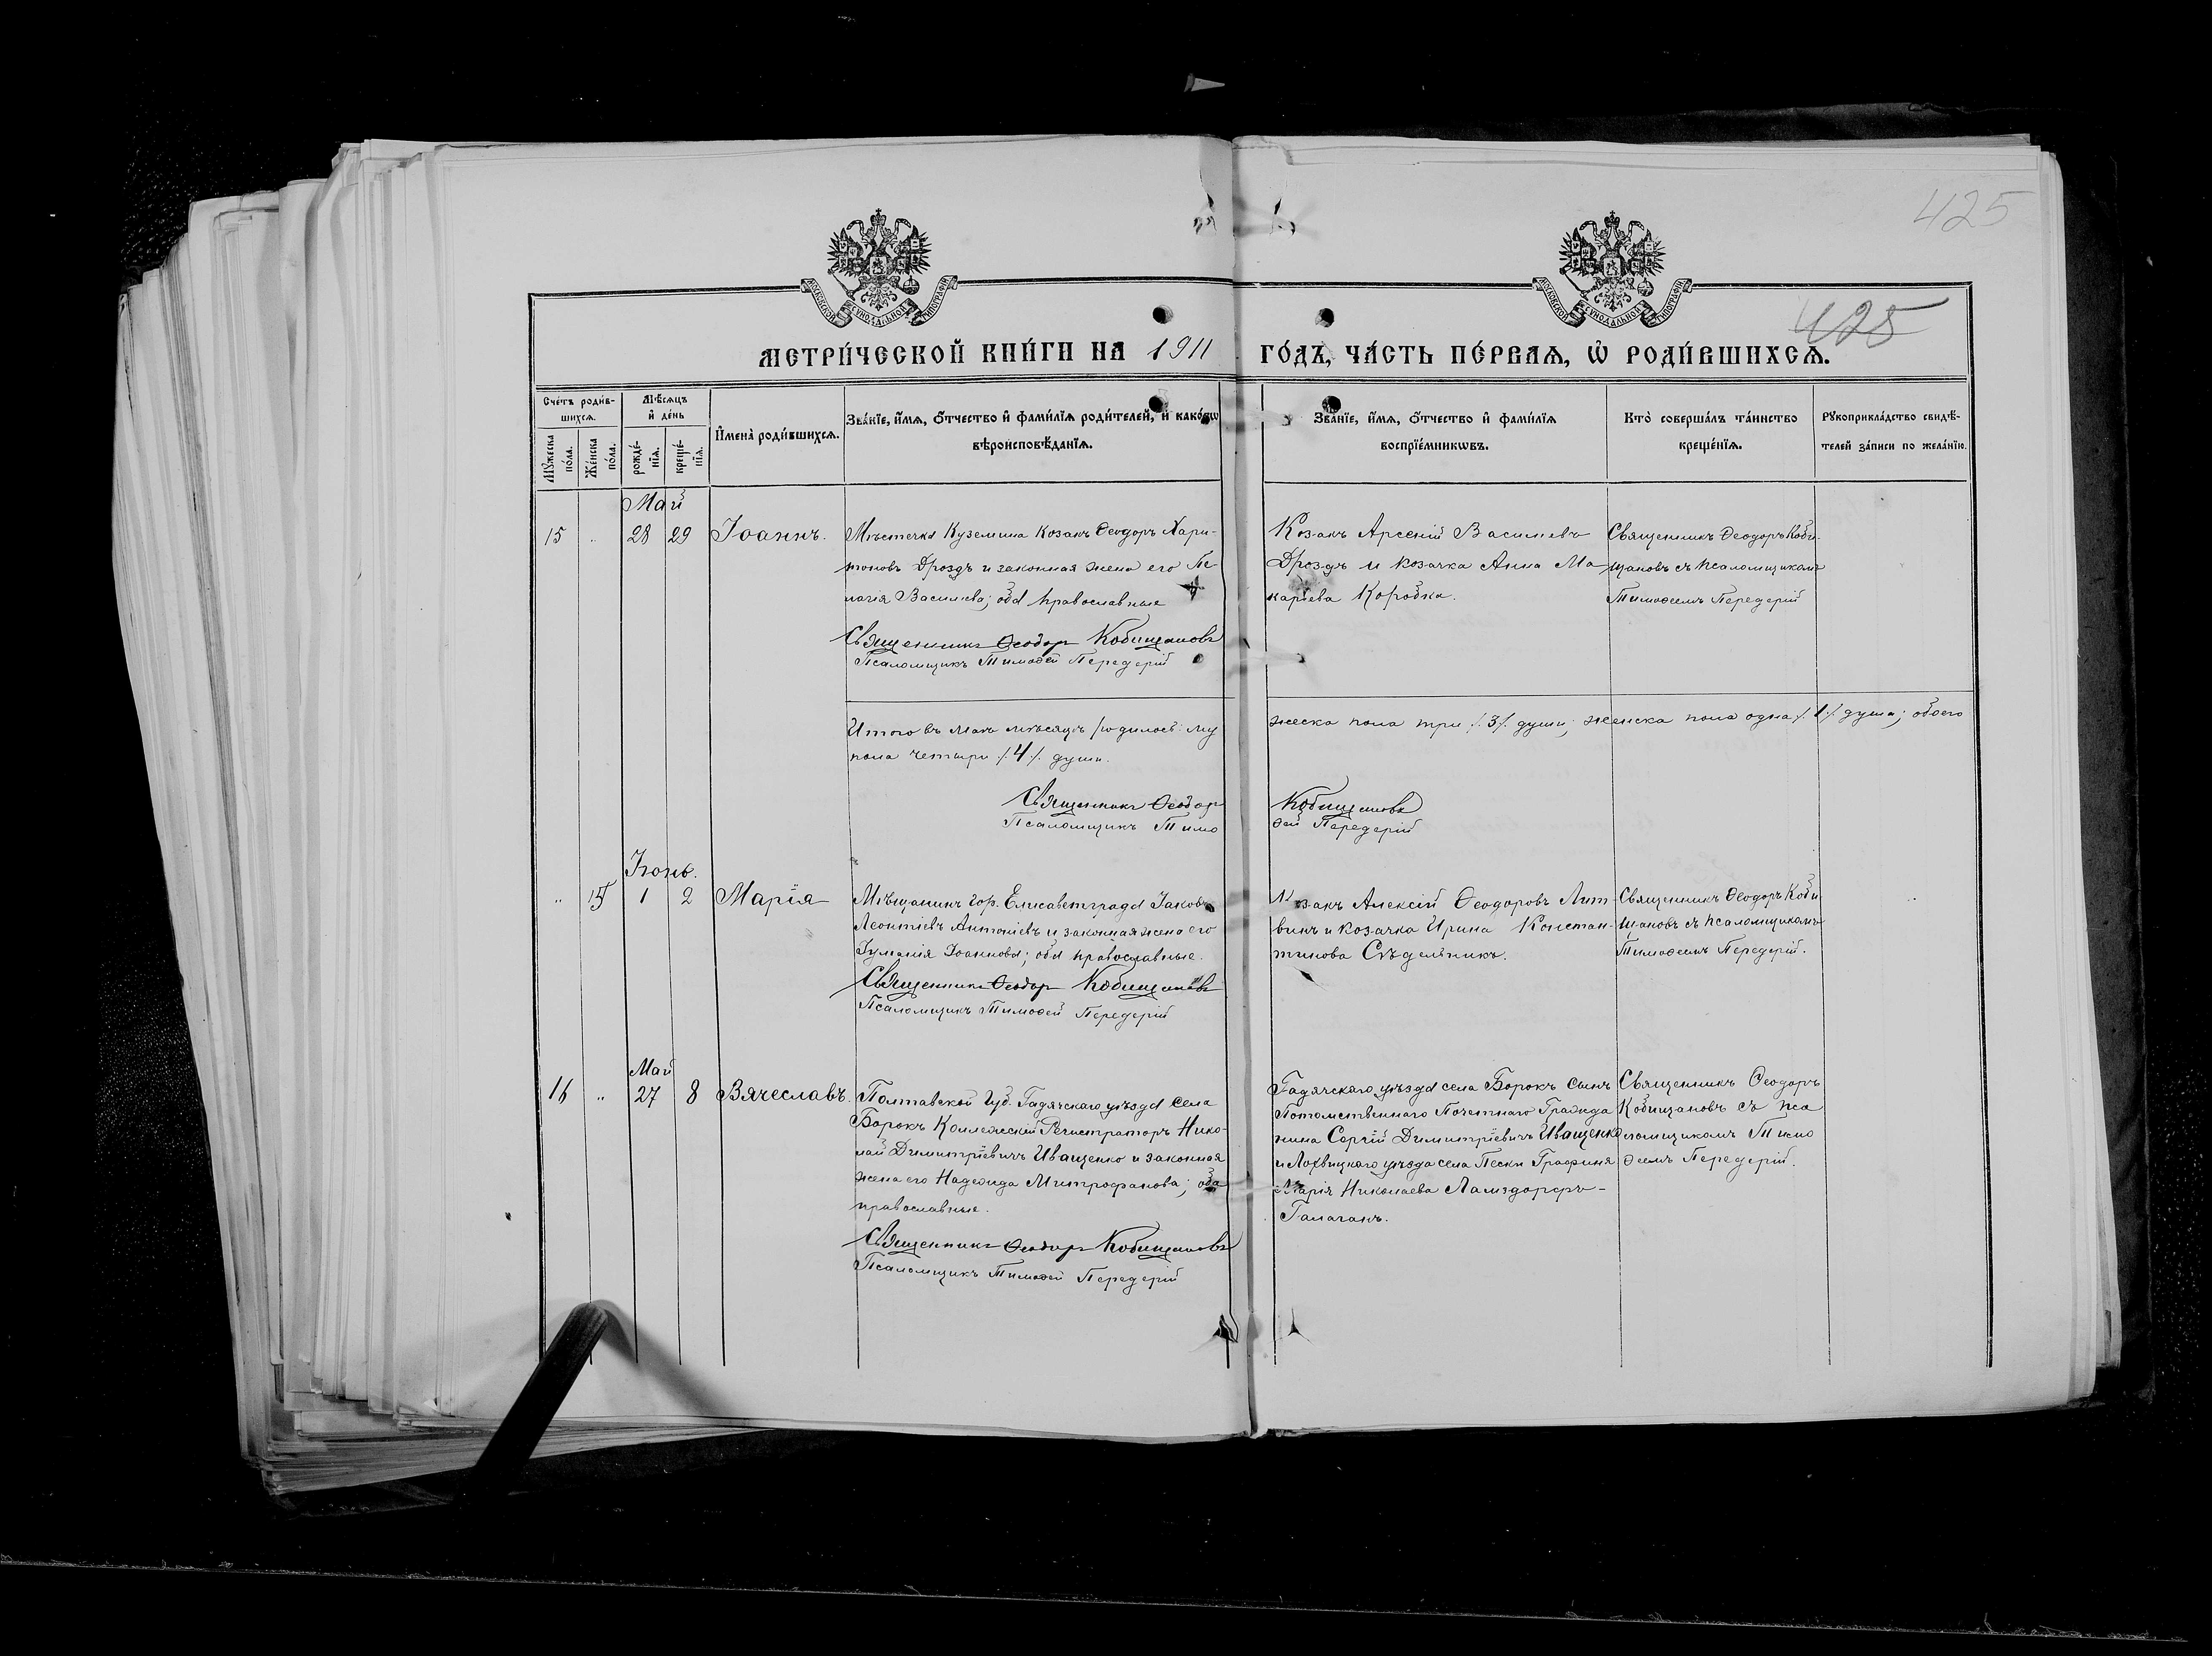 425
МОСКОВСКОЙ СѴНОДАЛЬНОЙ ТИПОГРАФІИ
МОСКОВСКОЙ СѴНОДАЛЬНОЙ ТИПОГРАФІИ
425
МЕТРИ́ЧЕСКОЙ КНИ́ГИ НА 1911 ГО́ДЪ, ЧА́СТЬ ПЕ́РВАѦ, Ѡ҆ РОДИ́ВШИХСѦ.
Сче́тъ роди́в-
шихсѧ.
Мꙋ́жеска
по́ла.
Же́нска
по́ла.
Мѣ́сѧцъ
и҆ де́нь
рожде́-
нїѧ.
креще́-
нїѧ.
И҆мена̀ роди́вшихсѧ.
Зва́нїе, и҆́мѧ, ѻ҆́тчество и҆ фами́лїѧ роди́телей, и҆ како́гѡ
вѣроисповѣ́данїѧ.
Зва́нїе, и҆́мѧ, ѻ҆́тчество и҆ фами́лїѧ
воспрїе́мникѡвъ.
Кто̀ соверша́лъ та́инство
креще́нїѧ.
Рꙋкоприкла́дство свидѣ́-
телей за́писи по жела́нїю.
Май
15 „ 28 29 Іоаннъ.
Мѣстечка Куземина козакъ Ѳеодоръ Хари-
тоновъ Дроздъ и законная жена его Пе
лагія Васильева; оба православные
Священникъ Ѳеодоръ Кобищановъ
Псаломщикъ Тимоѳей Передерій
Козакъ Арсеній Васильевъ
Дроздъ и козачка Анна Ма
каріева Коробка.
Священникъ Ѳеодоръ Коби-
щановъ съ псаломщикомъ
Тимоѳеемъ Передерій
Итого въ маѣ мѣсяцѣ родилось: му жеска пола три /.3/. души; женска пола одна /.1/. душа; обоего
пола четыре /.4/. души.
Священникъ Ѳеодоръ Кобищановъ
Псаломщикъ Тимо ѳей Передерій
Іюнь.
„ 15 1 2 Марія
Мѣщанинъ гор. Елисаветграда Іаковъ
Леонтіевъ Антоніевъ и законная жена его
Іуліанія Іоаннова; оба православные.
Священникъ Ѳеодоръ Кобищановъ
Псаломщикъ Тимоѳей Передерій
Козакъ Алексій Ѳеодоровъ Лит-
винъ и козачка Ирина Констан-
тинова Сѣдельникъ.
Священникъ Ѳеодоръ Коби
щановъ съ псаломщикомъ
Тимоѳеемъ Передерій.
Май
16 „ 27 8 Вячеславъ.
Полтавской губ. Гадячскаго уѣзда села
Борокъ Коллежскій Регистраторъ Нико-
лай Димитріевичъ Иващенко и законная
жена его Надежда Митрофанова; оба
православные.
Священникъ Ѳеодоръ Кобищановъ
Псаломщикъ Тимоѳей Передерій
Гадячскаго уѣзда села Борокъ сынъ
Потомственнаго Почетнаго Гражда
нина Сергій Димитріевичъ Иващенко
и Лохвицкаго уѣзда села Пески Графиня
Марія Николаева Ламздорфъ-
Галаганъ.
Священникъ Ѳеодоръ
Кобищановъ съ пса
ломщикомъ Тимо
ѳеемъ Передерій.